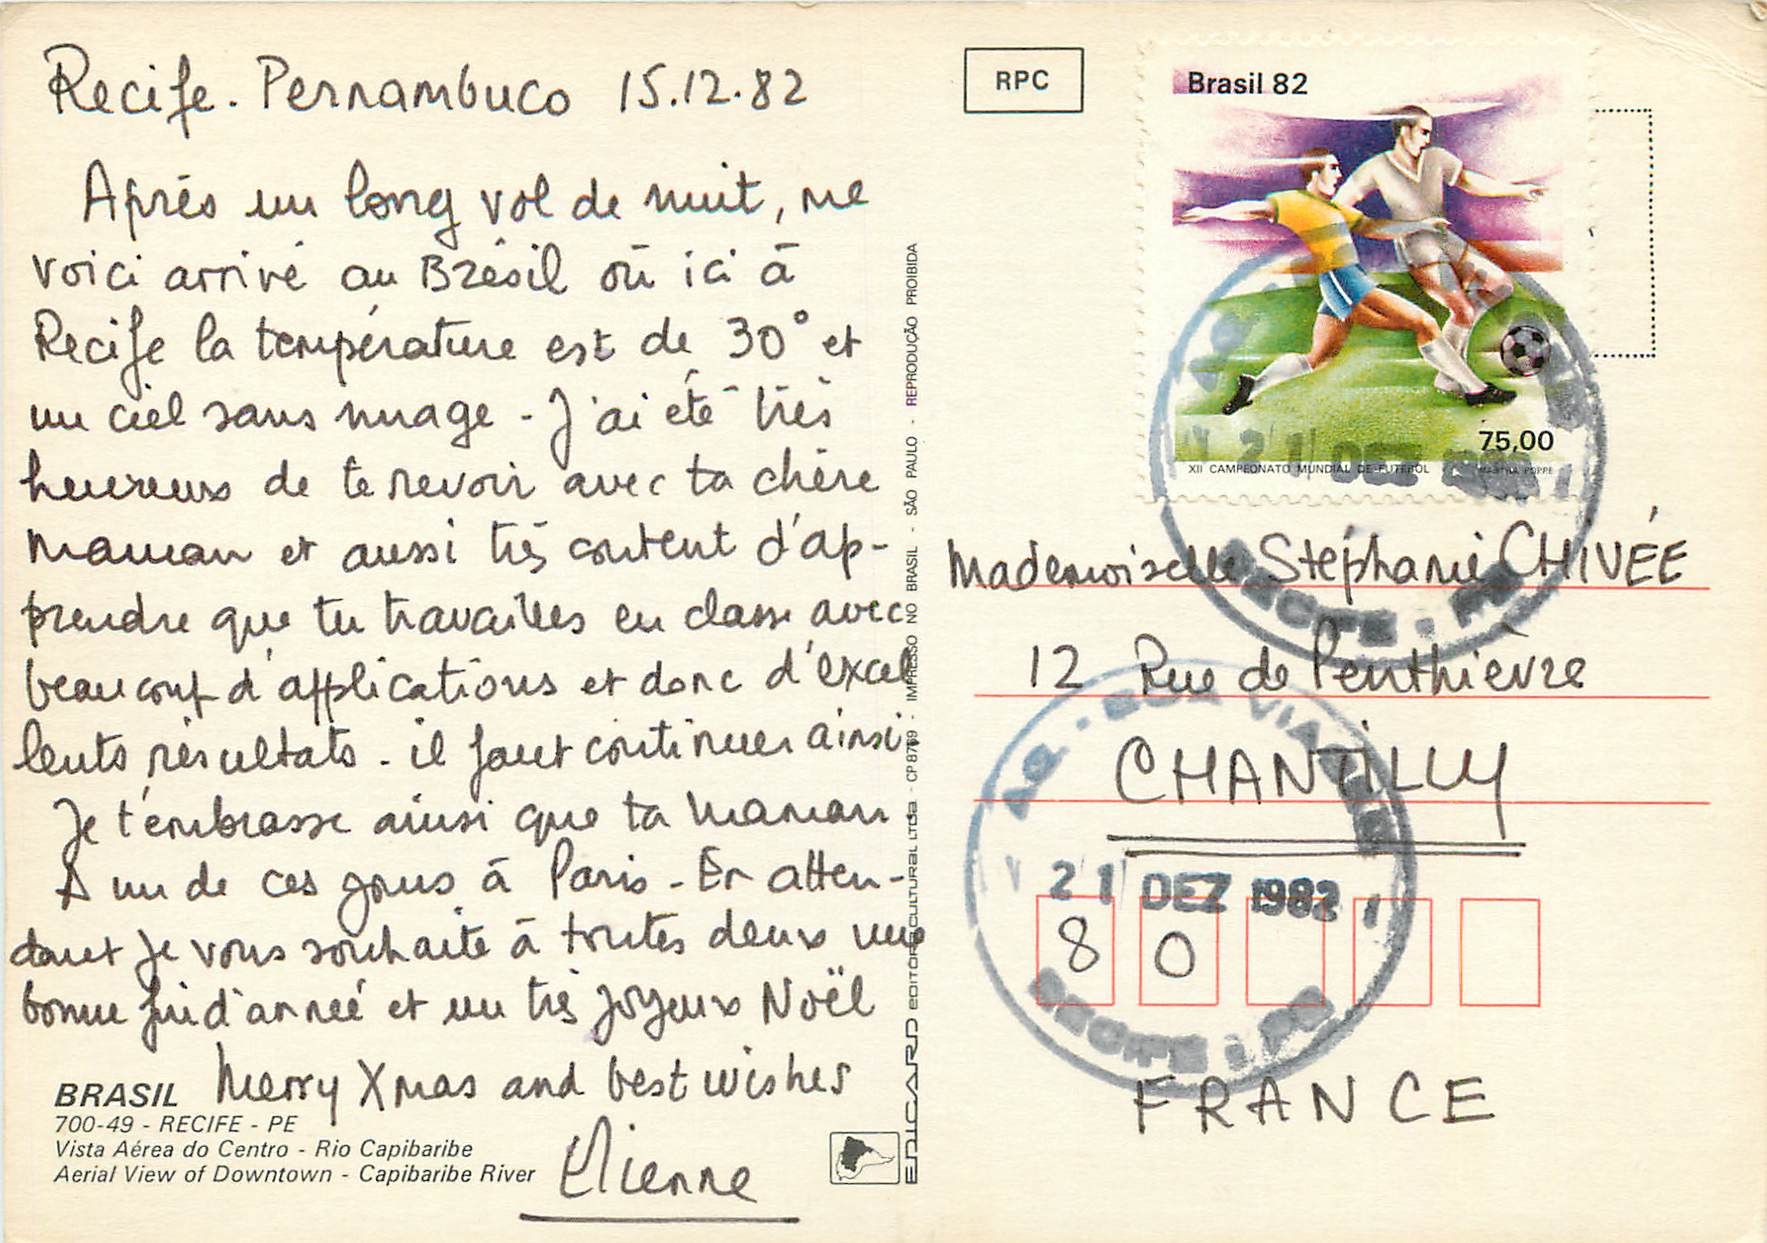 Recife. Pernambuco 15.12.82
Après un long vol de nuit, me
voici arrivé au Brésil où ici à
Recife la température est de 30° et
un ciel sans nuage - J'ai été très
heureux de te revoir avec ta chère
maman et aussi très content d'ap-
prendre que tu travailles en classe avec
beaucoup d'applications et donc d'excel
lents résultats - il faut continuer ainsi.
Je t'embrasse ainsi que ta maman
A un de ces jours à Paris - En atten-
dant je vous souhaite à toutes deux une
bonne fin d'année et un très joyeux Noël
Merry Xmas and best wishes
Etienne
BRASIL
700-49 - RECIFE - PE
Vista Aérea do Centro - Rio Capibaribe
Aerial View of Downtown - Capibaribe River
EDICARD EDITORA CULTURAL LTDa - CP 8769 - IMPRESSO NO BRASIL - SÃO PAULO - REPRODUÇÃO PROIBIDA
RPC
Brasil 82
75,00
XII CAMPEONATO MUNDIAL DE FUTEBOL MARTHA POPPE
21 DEZ
RECIFE - PE
Mademoiselle Stéphanie CHIVÉE
12 Rue de Penthièvre
CHANTILLY
AG. BOA VIAGEM
21 DEZ 1982
RECIFE - PE
80
FRANCE